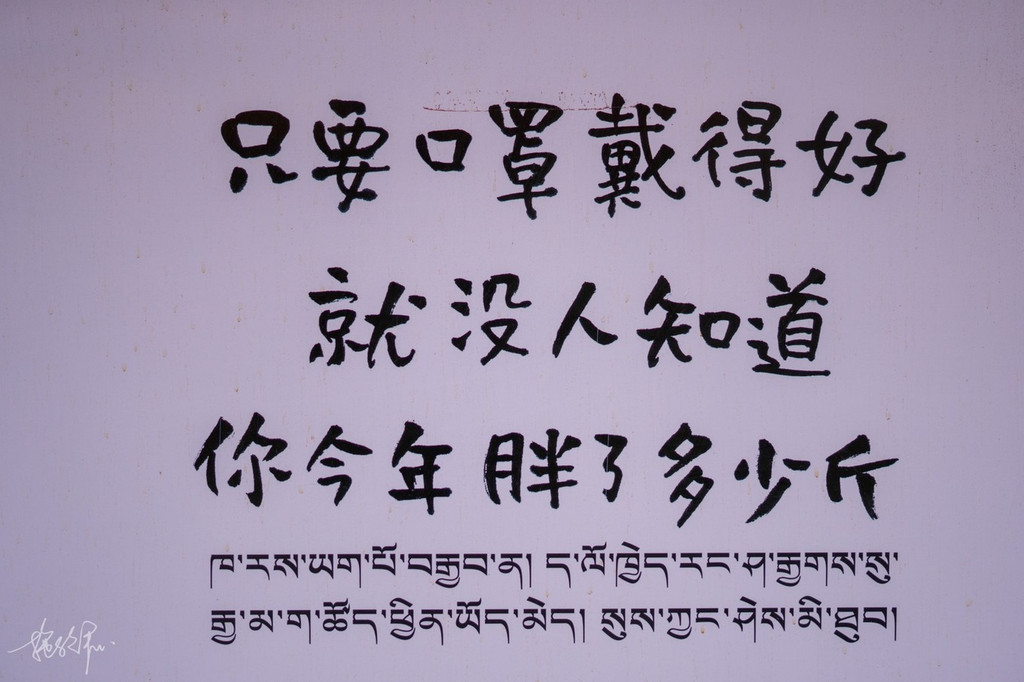 只要口罩戴得好
就没人知道
你今年胖了多少斤
ཁ་རས་ཡག་པོ་བརྒྱབ་ན། ད་ལོ་ཁྱེད་རང་ཤ་རྒྱགས་སུ་
རྒྱ་མ་ག་ཚོད་ཕྱིན་ཡོད་མེད། སུས་ཀྱང་ཤེས་མི་ཐུབ།